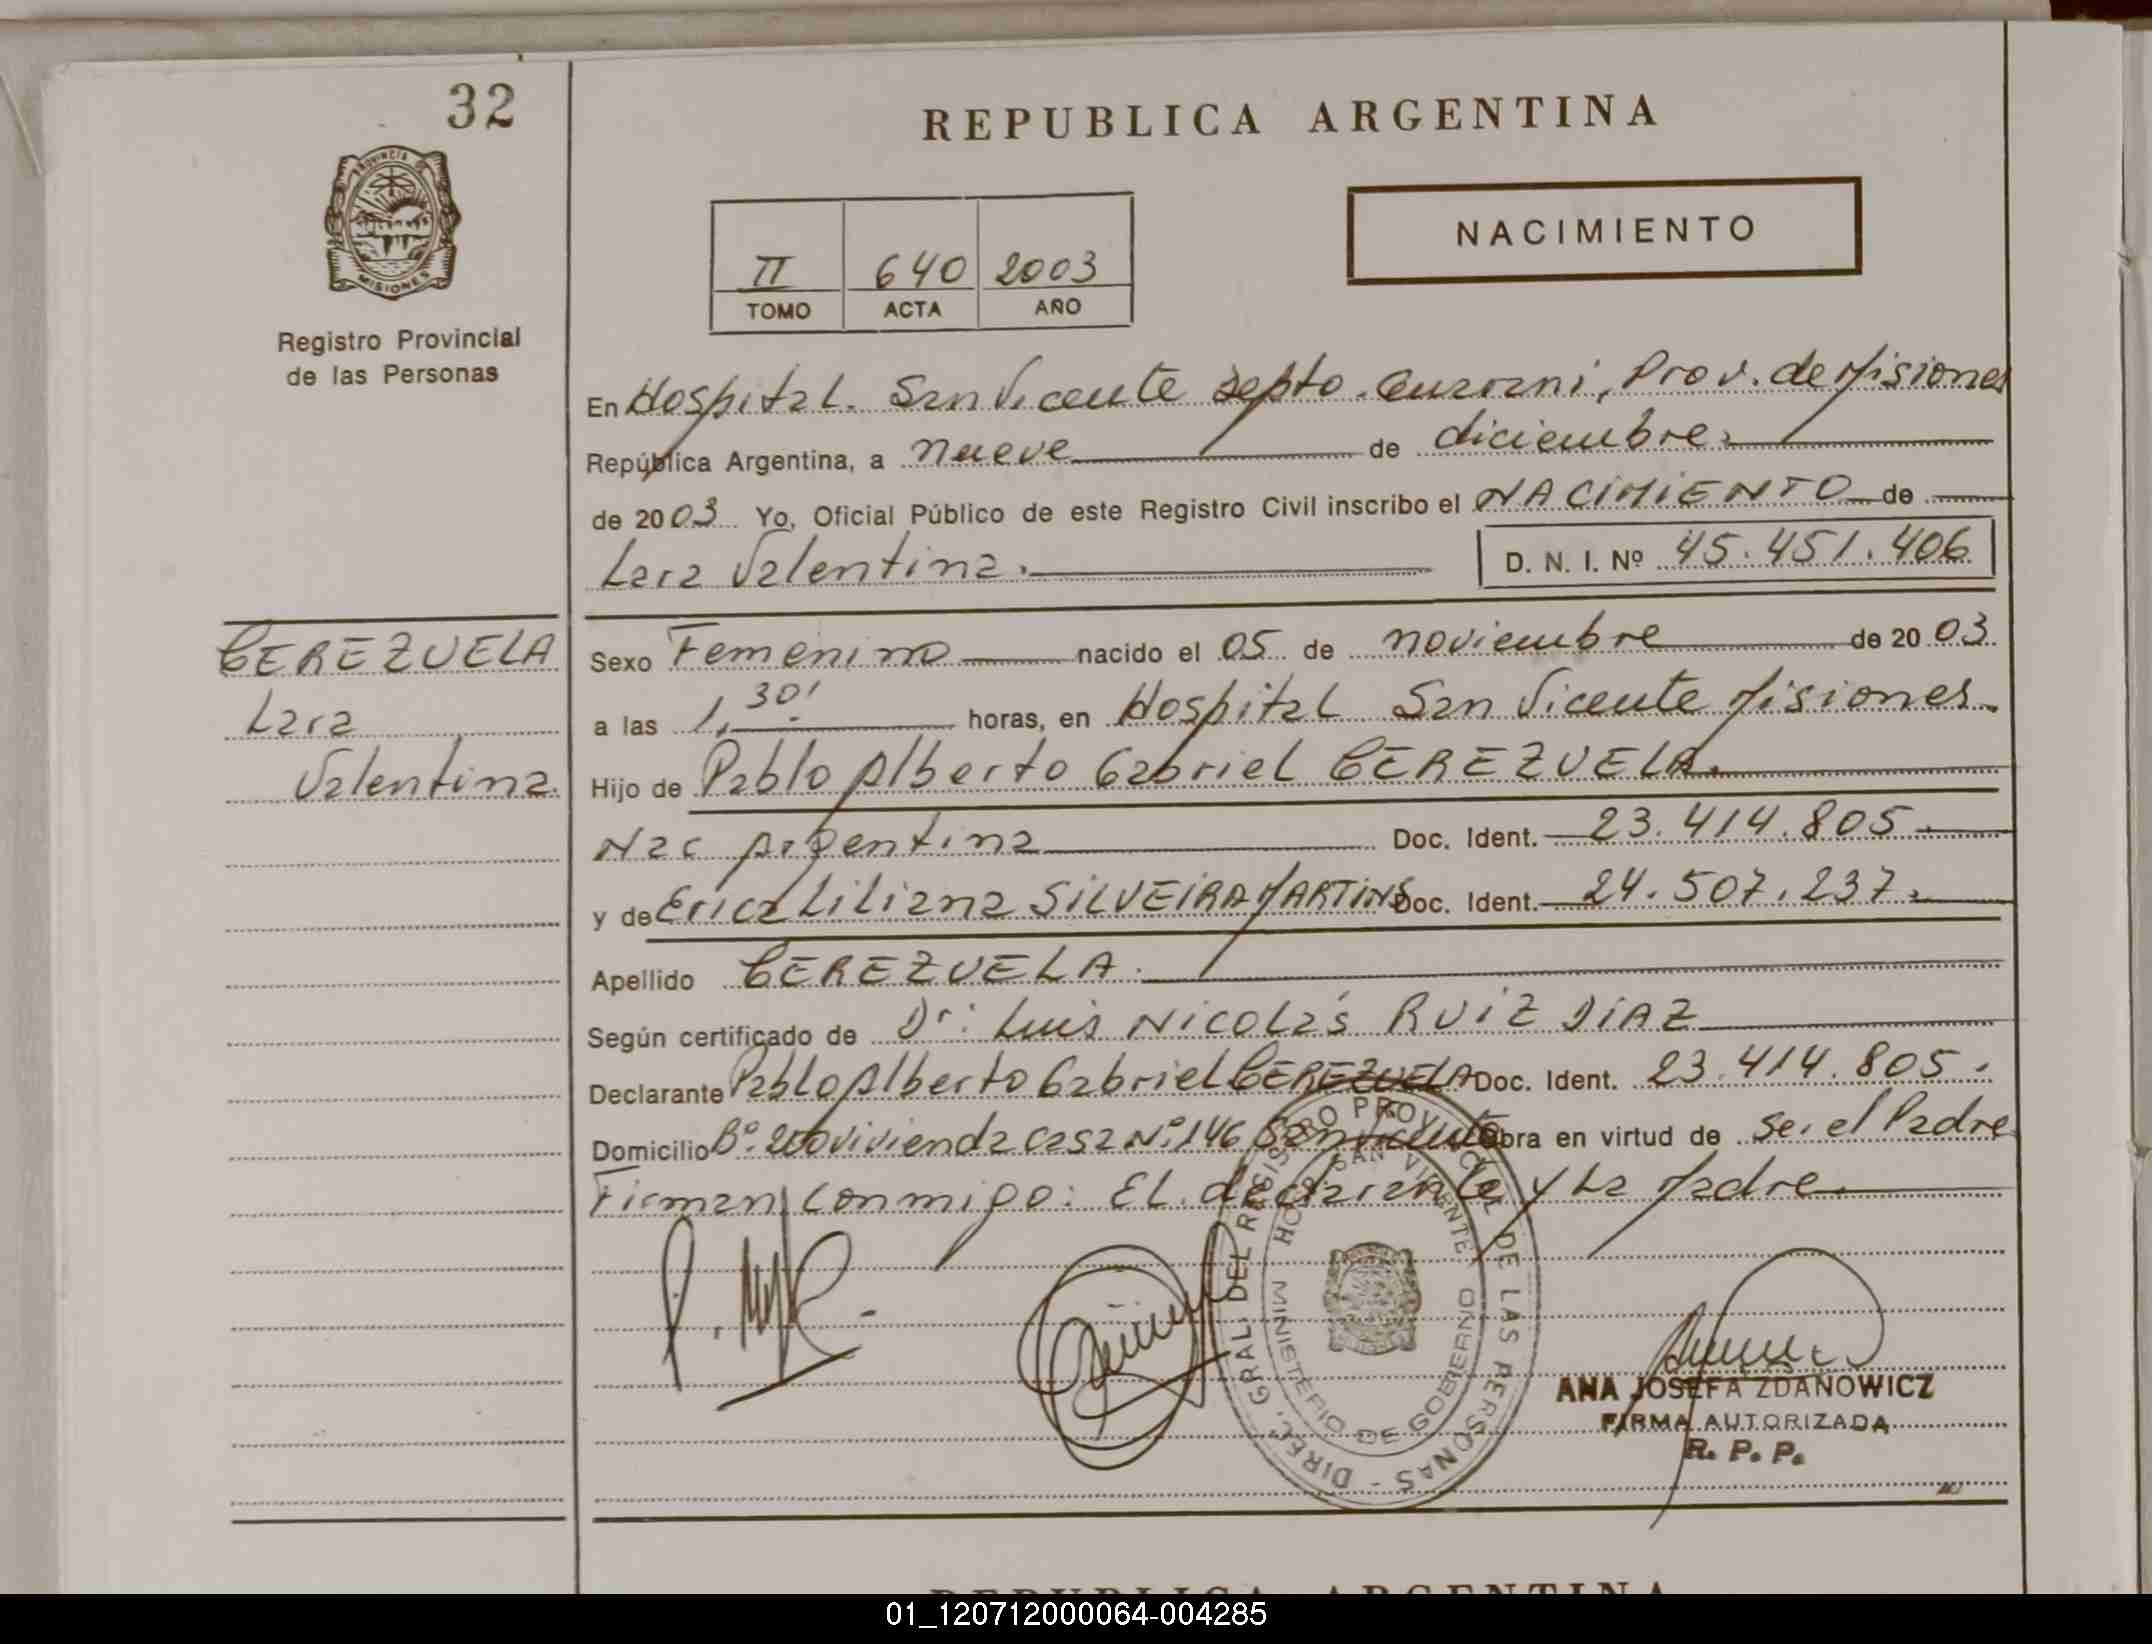 32
REPUBLICA ARGENTINA
PROVINCIA DE
MISIONES
Registro Provincial
de las Personas
NACIMIENTO
II 640 2003
TOMO ACTA AÑO
En Hospital. San Vicente Depto. Guarani, Prov. de Misiones
República Argentina, a nueve de diciembre.
de 2003 Yo, Oficial Público de este Registro Civil inscribo el NACIMIENTO de
Lara Valentina. D. N. I. Nº 45.451.406
CEREZUELA
Lara
Valentina.
Sexo Femenino nacido el 05 de noviembre de 2003.
a las 1,30' horas, en Hospital San Vicente Misiones.
Hijo de Pablo Alberto Gabriel CEREZUELA.
Nac Argentina Doc. Ident. 23.414.805.
y de Erica Liliana SILVEIRA MARTINS Doc. Ident. 24.507.237.
Apellido CEREZUELA.
Según certificado de Dr: Luis Nicolás RUIZ DIAZ
Declarante Pablo Alberto Gabriel CEREZUELA Doc. Ident. 23.414.805.
Domicilio Bº. 200 vivienda casa Nº.146 San Vicente Obra en virtud de ser el Padre
Firman conmigo: El declarante y La Madre.
DIREC. GRAL. DEL REGISTRO PROVINCIAL DE LAS PERSONAS -
HOSP. SAN VICENTE
MINISTERIO DE GOBIERNO
ANA JOSEFA ZDANOWICZ
FIRMA AUTORIZADA
R. P. P.
REPUBLICA ARGENTINA
01_120712000064-004285